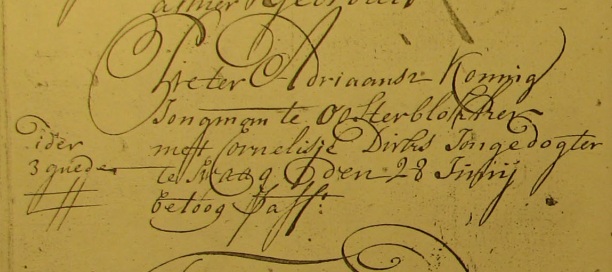 Pieter Adriaansz Konnig
Jongman te Oosterblokker
ider
3 guede
met Cornelisje Dirks Jongedogter
te Swaag den 28 Junij
betoog pass: